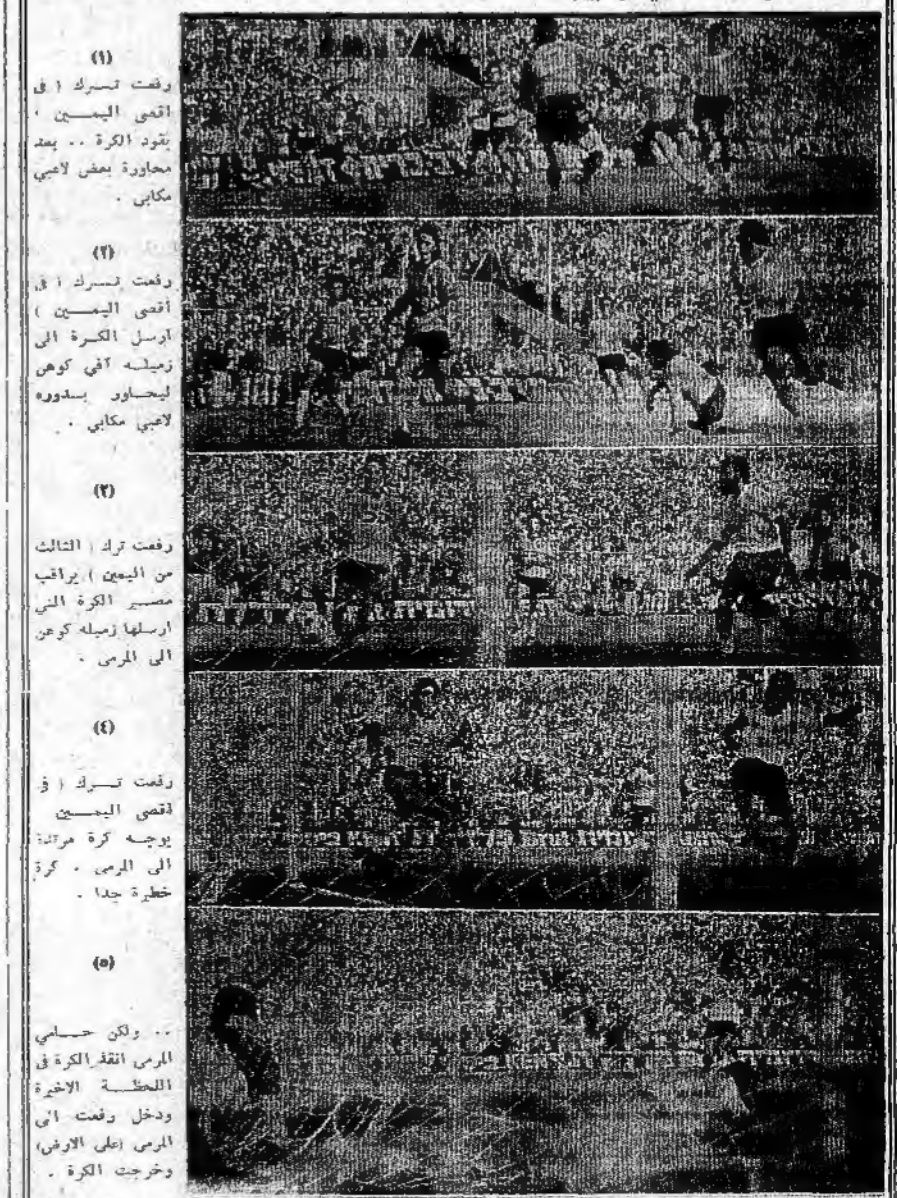 (١)
رفعت تـرك ( في
اقصى اليمــين
يقود الكرة .. بعد
محاورة بعض لاعبي
مكابي .
(٢)
رفعت تـرك ( في
أقصى اليمــين )
ارسل الكـرة الى
زميلـه آفي كوهن
ليحـاور بـدوره
لاعبي مكابي .
(٣)
رفعت ترك ( الثالث
من اليمين ) يراقب
مصـير الكرة التي
ارسلها زميله كوهن
الى المرمى .
(٤)
رفعت تـرك ( في
اقصى اليمــين
يوجـه كرة مرتدة
الى المرمى . كرة
خطيرة جدا .
(٥)
.. ولكن حــامي
المرمى انقذ الكرة في
اللحظــة الاخيرة
ودخل رفعت الى
المرمى (على الارض)
وخرجت الكرة .